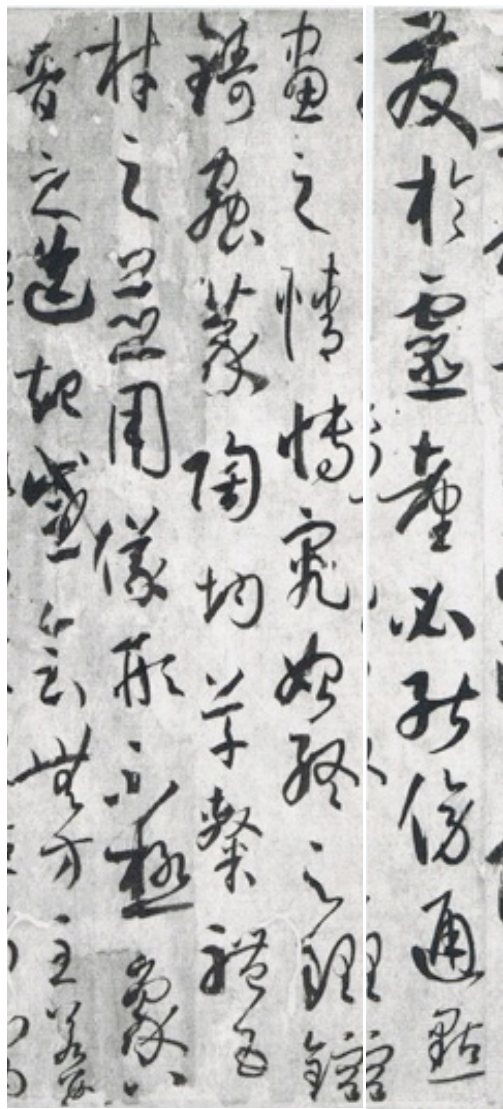 發於靈臺必能傍通點
畫之情博究始終之理鎔
鑄蟲篆陶均草隸體五
材之並用儀形不極象八
音之迭起感會無方至若